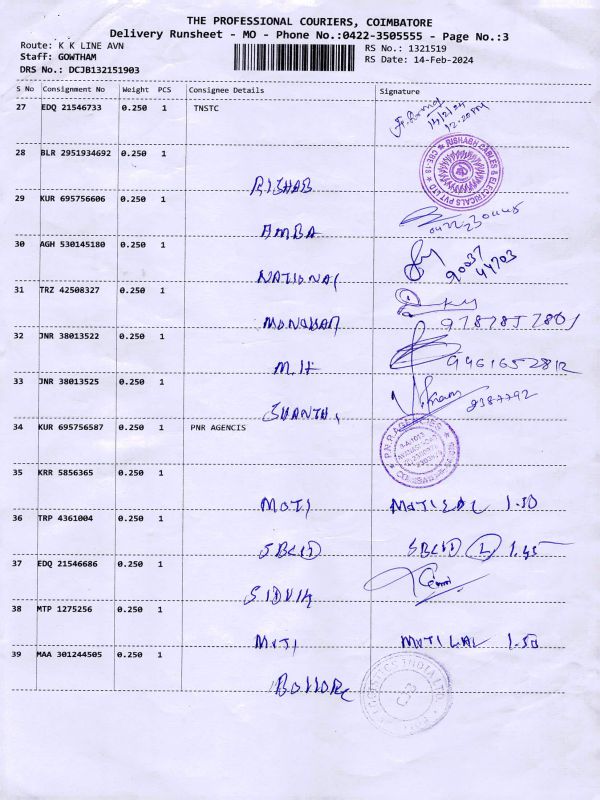 THE PROFESSIONAL COURIERS, COIMBATORE
Delivery Runsheet - MO - Phone No.:0422-3505555 - Page No.:3
Route: K K LINE AVN
Staff: GOWTHAM
DRS No.: DCJB132151903
RS No.: 1321519
RS Date: 14-Feb-2024
S No Consignment No Weight PCS Consignee Details Signature
27 EDQ 21546733 0.250 1 TNSTC
14/2/24
12.20PM
28 BLR 2951934692 0.250 1
RISHAB
RISHABH CABLES & ELECTRICALS PVT LTD
CBE-18
29 KUR 695756606 0.250 1
AMBA
30 AGH 530145180 0.250 1
NATIONAL
90037
44703
31 TRZ 42508327 0.250 1
MONOHAR
32 JNR 38013522 0.250 1
M.H
33 JNR 38013525 0.250 1
SHANTHI
34 KUR 695756587 1 0.250 PNR AGENCIS
P.N.R. AGENCIES
35 KRR 5856365 0.250 1
MOTI MOTILAL 1.50
36 TRP 4361004 0.250 1
1.45
37 EDQ 21546686 0.250 1
38 MTP 1275256 0.250 1
MOTI MOTILAL 1.50
39 MAA 301244505 0.250 1